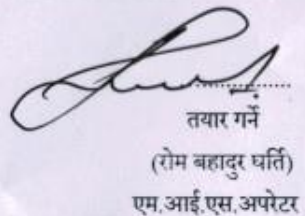 तयार गर्ने
(रोम बहादुर घर्ति)
एम.आई.एस.अपरेटर